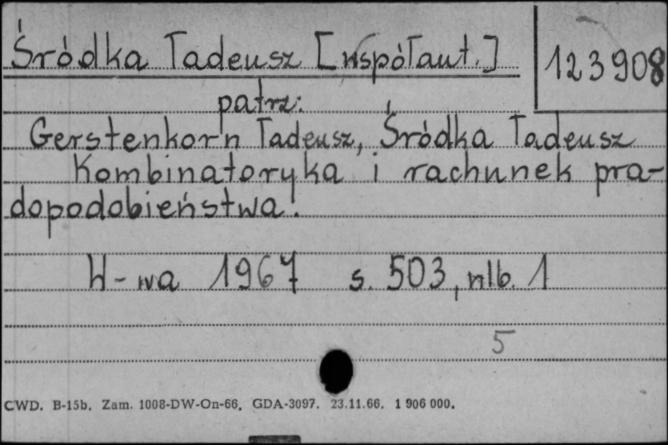 Śródka Tadeusz [współaut.]
123908
patrz:
Gerstenkorn Tadeusz, Śródka Tadeusz
Kombinatoryka i rachunek pra-
dopodobieństwa.
W-wa 1967 s. 503, nlb. 1
5
CWD. B-15b. Zam. 1008-DW-On-66. GDA-3097. 23.11.66. 1 906 000.